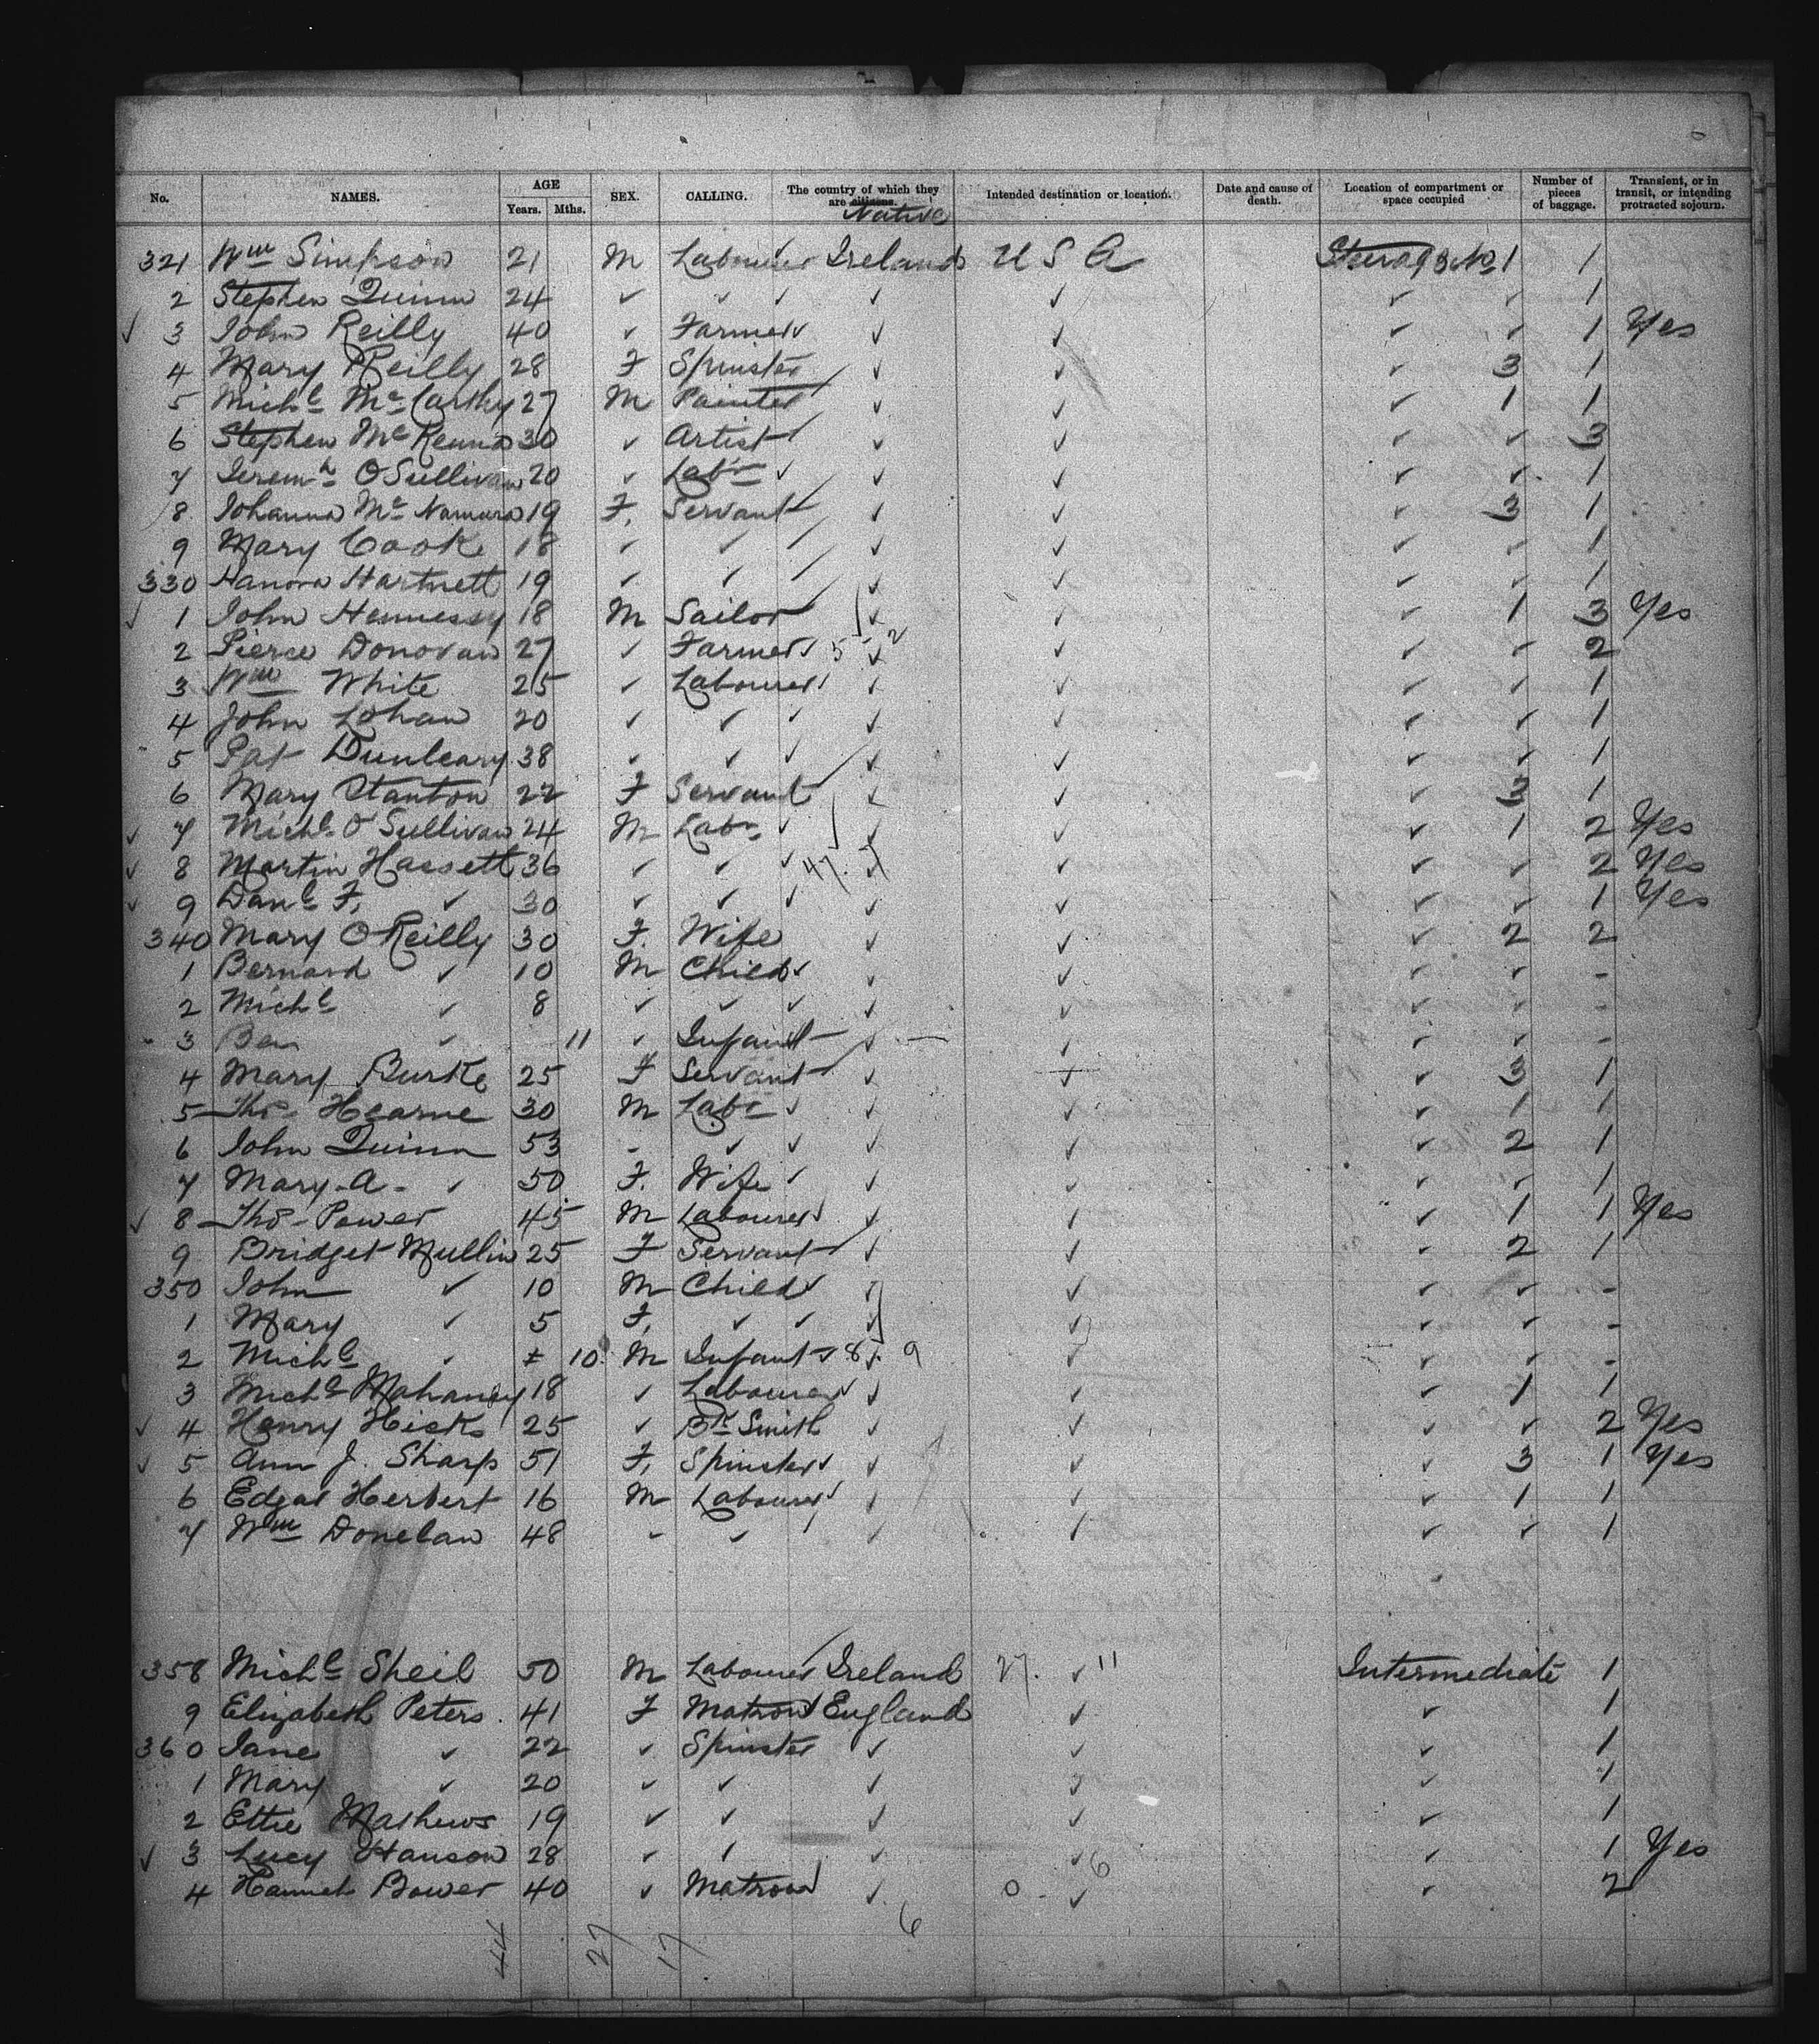 No. NAMES. AGE Years. Mths. SEX. CALLING. The country of which they are citizens. Native Intended destination or location. Date and cause of death. Location of compartment or space occupied Number of pieces of baggage. Transient, or in transit, or intending protracted sojourn.
321 Wm Simpson 21 M Labourer Ireland U S A Steerage No 1 1
2 Stephen Quinn 24 ✓ ✓ ✓ ✓ ✓ ✓ ✓ 1
✓ 3 John Reilly 40 ✓ Farmer ✓ ✓ ✓ ✓ ✓ 1 Yes
4 Mary Reilly 28 F Spinster ✓ ✓ ✓ 3 1
5 Michl McCarthy 27 M Painter ✓ ✓ ✓ 1 1
6 Stephen McKenna 30 ✓ Artist ✓ ✓ ✓ ✓ 3
7 Jeremh O'Sullivan 20 ✓ Labr ✓ ✓ ✓ ✓ ✓ 1
8 Johanna McNamara 19 F. Servant ✓ ✓ ✓ 3 1
9 Mary Cooke 18 ✓ ✓ ✓ ✓ ✓ ✓ 1
330 Hanora Hartnett 19 ✓ ✓ ✓ ✓ ✓ ✓ 1
✓ 1 John Hennessy 18 M Sailor ✓ ✓ ✓ 1 3 Yes
2 Pierce Donovan 27 ✓ Farmer ✓ 5 ✓ 2 ✓ ✓ ✓ 2
3 Wm White 25 ✓ Labourer ✓ ✓ ✓ ✓ ✓ 1
4 John Lohan 20 ✓ ✓ ✓ ✓ ✓ ✓ ✓ 1
5 Pat Dunleary 38 ✓ ✓ ✓ ✓ ✓ ✓ ✓ 1
6 Mary Stanton 22 F Servant ✓ ✓ ✓ 3 1
✓ 7 Michl O'Sullivan 24 M Labr ✓ ✓ ✓ ✓ 1 2 Yes
✓ 8 Martin Hassett 36 ✓ ✓ ✓ 47. 7 ✓ ✓ ✓ 2 Yes
✓ 9 Danl F. ✓ 30 ✓ ✓ ✓ ✓ ✓ ✓ ✓ 1 Yes
340 Mary O'Reilly 30 F. Wife ✓ ✓ ✓ 2 2
1 Bernard ✓ 10 M Child ✓ ✓ ✓ ✓ ✓ -
2 Michl ✓ 8 ✓ ✓ ✓ ✓ ✓ ✓ ✓ -
3 Ben ✓ 11 ✓ Infant ✓ ✓ ✓ ✓ -
4 Mary Burke 25 F Servant ✓ ✓ ✓ 3 1
5 Thos Hearne 30 M Labr ✓ ✓ ✓ ✓ 1 1
6 John Quinn 53 - ✓ ✓ ✓ ✓ ✓ 2 1
7 Mary A. ✓ 50 F. Wife ✓ ✓ ✓ ✓ ✓ 1
✓ 8 Thos Power 45 M Labourer ✓ ✓ ✓ ✓ 1 1 Yes
9 Bridget Mullin 25 F Servant ✓ ✓ ✓ 2 1
350 John ✓ 10 M Child ✓ ✓ ✓ ✓ ✓ -
1 Mary ✓ 5 F. ✓ ✓ ✓ ✓ ✓ ✓ -
2 Michl ✓ 10 M Infant ✓ 8 ✓ 9 ✓ ✓ ✓ -
3 Michl Mahaney 18 ✓ Labourer ✓ ✓ ✓ ✓ 1 1
✓ 4 Henry Hicks 25 ✓ Bk Smith ✓ ✓ ✓ ✓ 2 Yes
✓ 5 Ann J. Sharp 51 F. Spinster ✓ ✓ ✓ ✓ 3 1 Yes
6 Edgar Herbert 16 M Labourer ✓ ✓ ✓ ✓ 1 1
7 Wm Donelan 48 ✓ ✓ ✓ ✓ ✓ ✓ 1
358 Michl Sheil 50 M Labourer Ireland 27. ✓ 11 Intermediate 1
9 Elizabeth Peters 41 F Matron England ✓ ✓ 1
360 Jane ✓ 22 ✓ Spinster ✓ ✓ ✓ 1
1 Mary ✓ 20 ✓ ✓ ✓ ✓ ✓ 1
2 Ettie Mathews 19 ✓ ✓ ✓ ✓ ✓ 1
✓ 3 Lucy Hanson 28 ✓ ✓ ✓ ✓ 6 ✓ 1 Yes
4 Hannah Bower 40 ✓ Matron ✓ 0 - ✓ ✓ 2
44 27 17 6